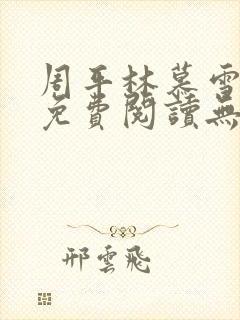 周平林慕雪
免費閱讀無
邢雲飛